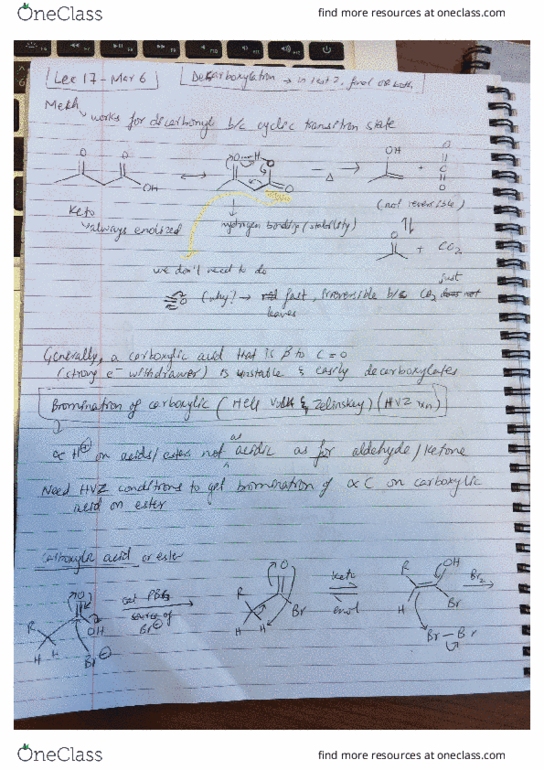 OneClass
find more resources at oneclass.com
Lec 17 - Mar 6
Decarboxylation → in test 2, final or both
Mech
works for dicarbonyl b/c cyclic transition state
O O OH
O H O O
Δ
OH + O C O
(not reversible)
O + CO2
Keto
always enolized
hydrogen bonding (stability)
we don't need to do
(why? → fast, irreversible b/c CO2 just
leaves
Generally, a carboxylic acid that is β to C=O
(strong e- withdrawer) is unstable & easily decarboxylates
Bromination of carboxylic (Hell Volh & Zelinskay) (HVZ rxn)
∝ H on acids/esters not as acidic as for aldehyde/ketone
Need HVZ conditions to get bromination of ∝ C on carboxylic
acid on ester
Carboxylic acid or ester
R O OH H H Br⊖
cat PBr3
source of
Br⊖
R O Br H H
keto
enol
R OH Br H
Br2
Br-Br
OneClass
find more resources at oneclass.com